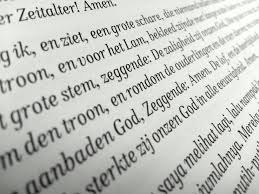 er Zeitalter! Amen.
g ik, en ziet, een grote schare, die niemand
troon, en voor het Lam, bekleed zijnde
t grote stem, zeggende: De zaligheid zij onzen God
m den troon, en rondom de ouderlingen en de
aanbaden God, Zeggende: Amen. De lof, en
sterkte zij onzen God in alle eeuwigheid. Amen
saya melihat lagi, lalu
Mereka